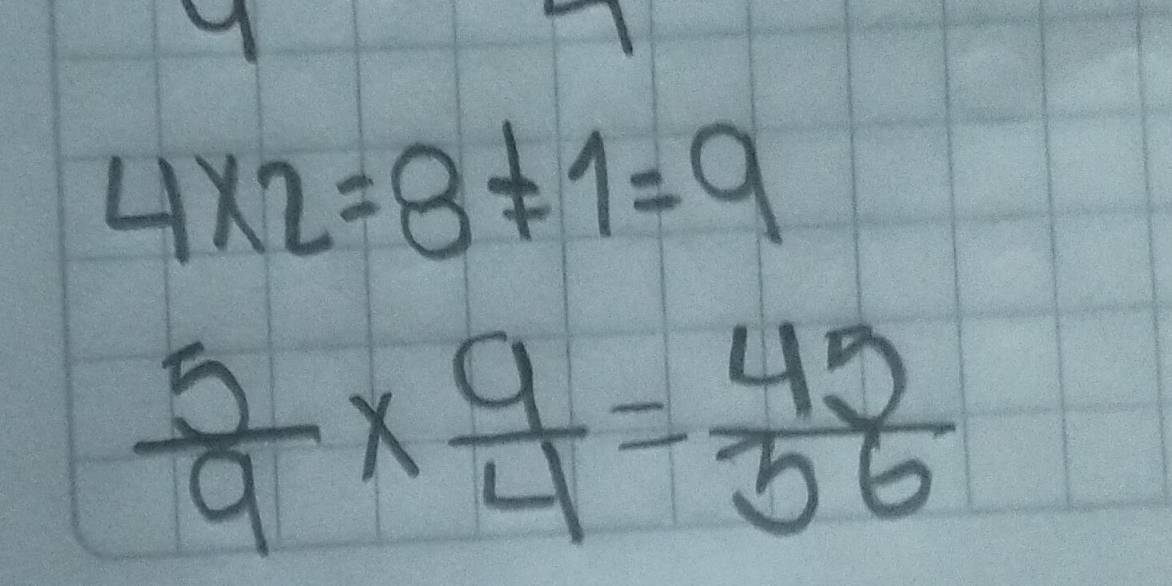 4x2=8+1=9
5/9 x 9/4 = 45/36